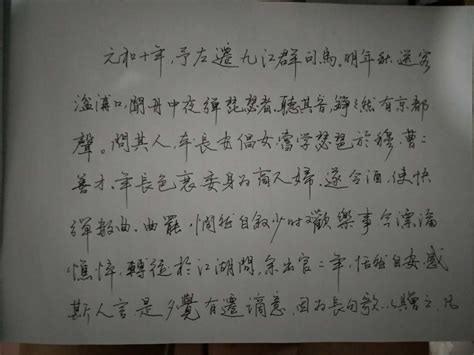 元和十年，予左遷九江群司馬。明年秋，送客
湓浦口，聞舟中夜彈琵琶者，聽其音，錚錚然有京都
聲。問其人，本長安倡女，嘗学琵琶於穆、曹二
善才，年長色衰，委身為商人婦。遂令酒，使快
彈數曲。曲罷，憫然自敘少时歡樂事，今漂淪
憔悴，轉徙於江湖間，余出官二年，恬然自安，感
斯人言，是夕覺有遷謫意，因为長句歌以贈之，凡